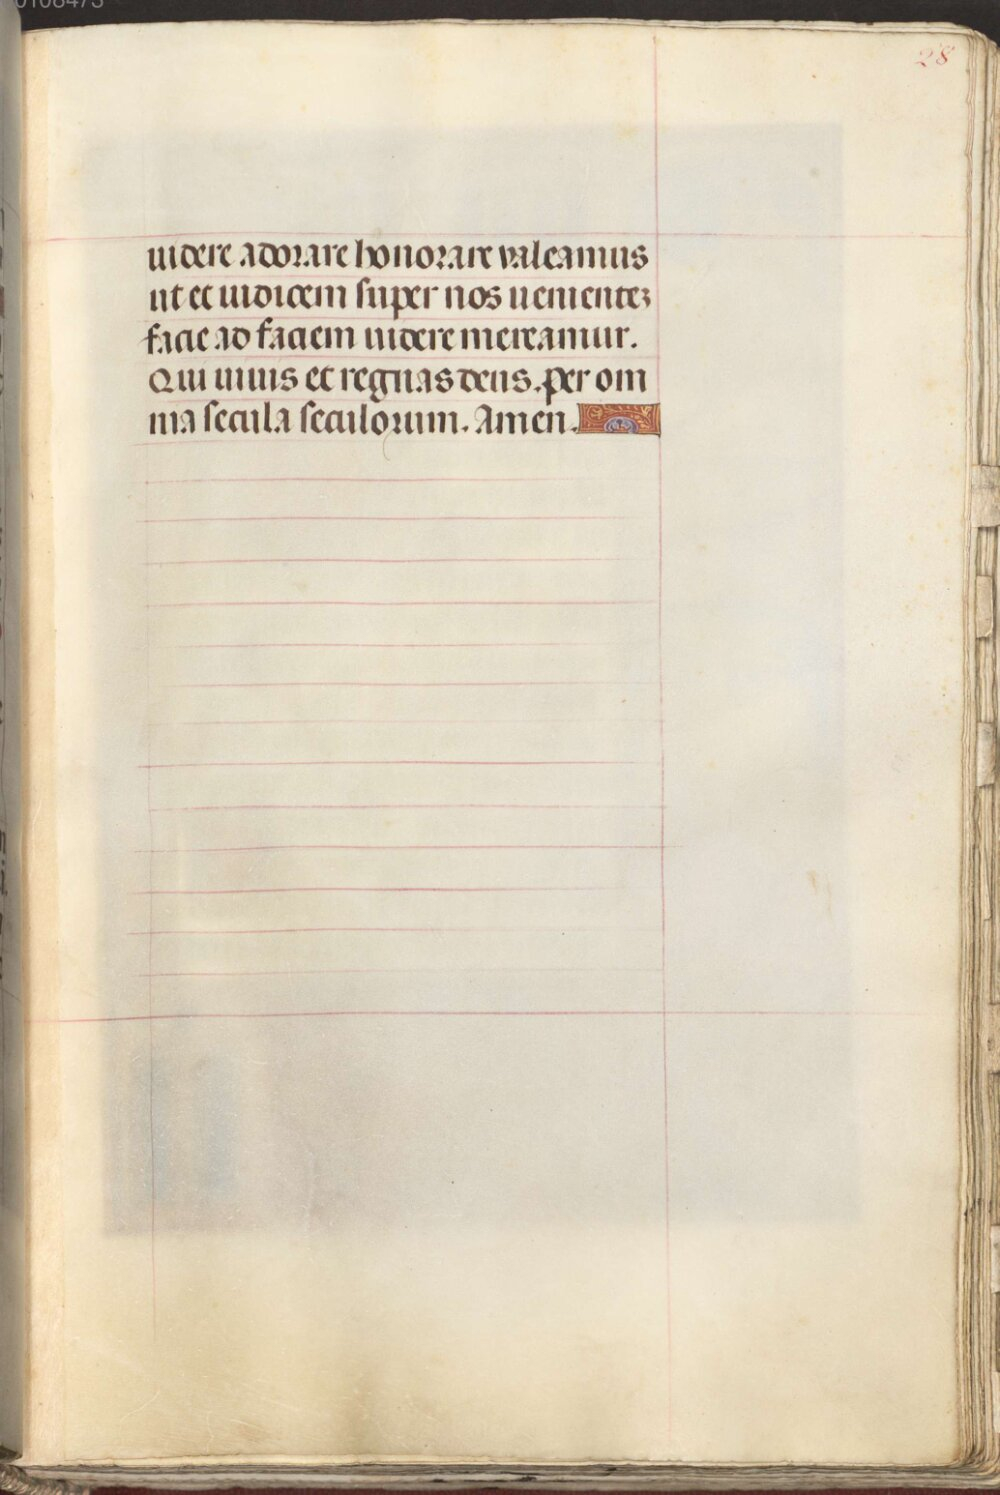 28
uidere adorare honorare valeamus
ut et iudicem super nos uenientez
facie ad faciem uidere mereamur.
Qui uiuis et regnas deus. per om
nia secula seculorum. Amen.